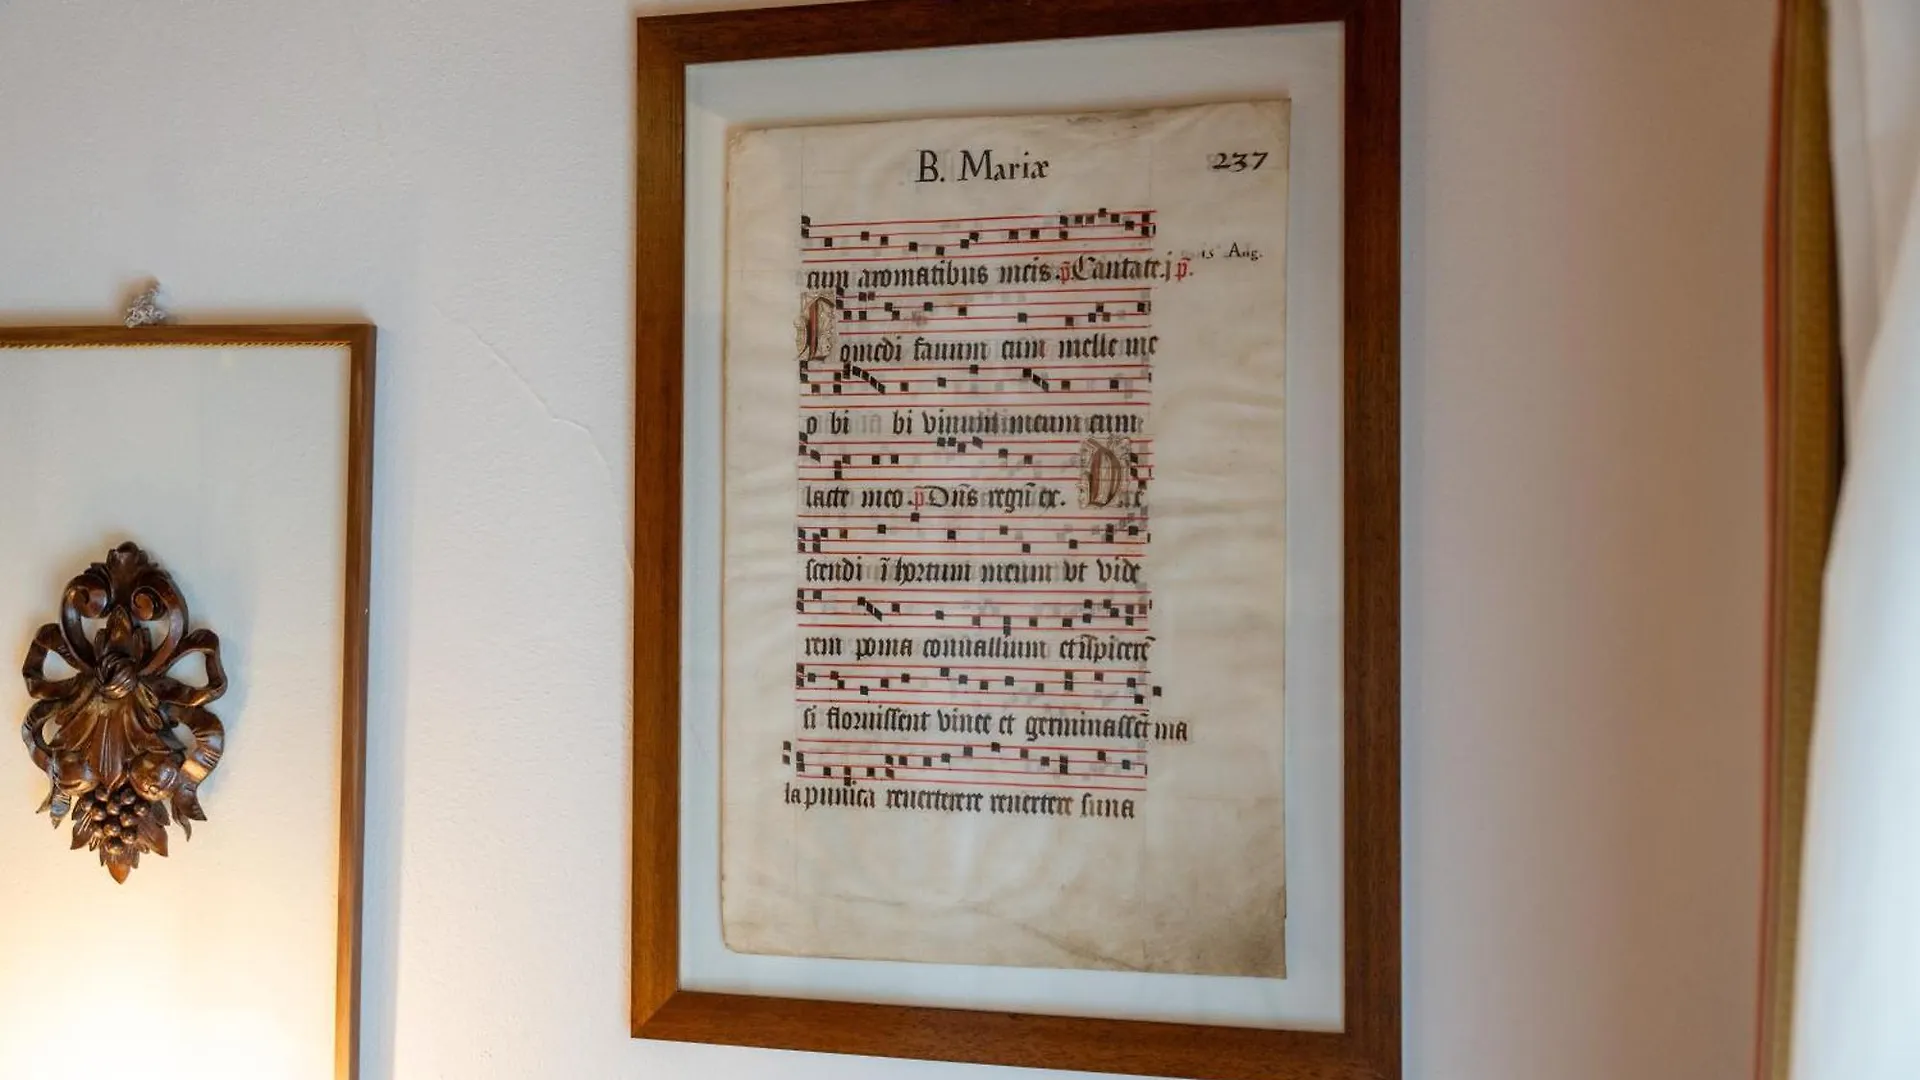 B. Mariæ 237
15 Aug.
cum aromatibus meis. p̄ Cantate. j p̄.
Comedi fauum cum melle me
o bi bi vinum meum cum
lacte meo. p̄ Dn̄s regn̄ ex. De
scendi ī hortum meum vt vide
rem poma conuallium et īspicerē
si floruissent vinee et germinassēt ma
la punica reuerterere reuertere suna